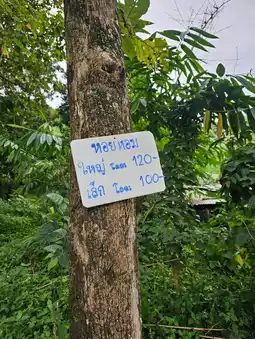 หอยหอม
ใหญ่ โลละ 120-
เล็ก โลละ 100-